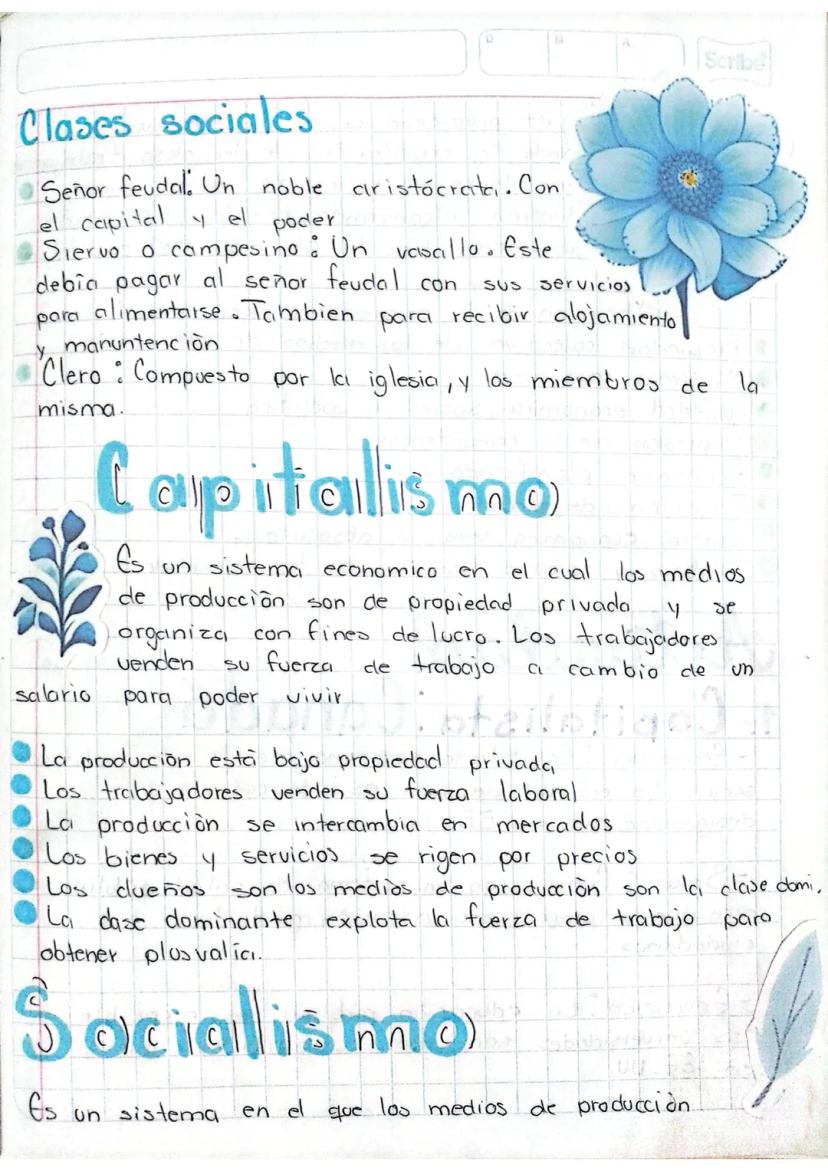 Scribe
Clases sociales
Señor feudal: Un noble aristócrata. Con
el capital y el poder
Siervo o campesino: Un vasallo. Este
debía pagar al señor feudal con sus servicios
para alimentarse. Tambien para recibir alojamiento
y manuntención
Clero: Compuesto por la iglesia, y los miembros de la
misma.
Capitalismo
Es un sistema economico en el cual los medios
de producción son de propiedad privada y se
organiza con fines de lucro. Los trabajadores
venden su fuerza de trabajo a cambio de un
salario para poder vivir
La producción está bajo propiedad privada
Los trabajadores venden su fuerza laboral
La producción se intercambia en mercados
Los bienes y servicios se rigen por precios
Los dueños son los medios de producción son la clase domi.
La clase dominante explota la fuerza de trabajo para
obtener plusvalía.
Socialismo
Es un sistema en el que los medios de producción